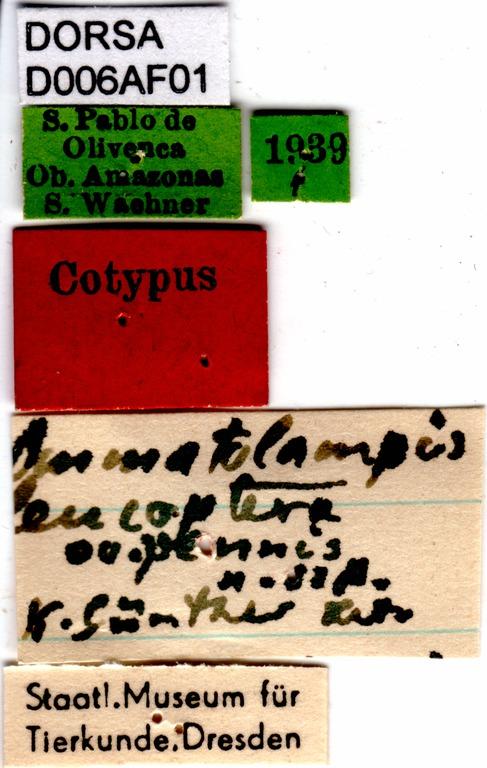 DORSA
D006AF01
S. Pablo de
Olivença
Ob. Amazonas
S. Waehner
1939
Cotypus
Ommatolampis
leucoptera
n. ssp.
K. Günther
Staatl.Museum für
Tierkunde,Dresden